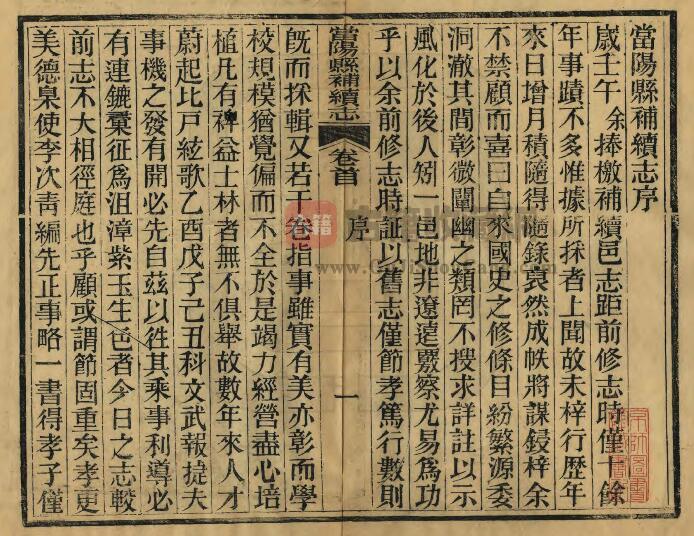 當陽縣補續志序
歲壬午余捧檄補續邑志距前修志時僅十餘
年事蹟不多惟據所採者上聞故未梓行歷年
來日增月積隨得隨錄裒然成帙將謀鋟梓余
不禁顧而喜曰自來國史之修條目紛繁源委
洞澈其間彰微闡幽之類罔不搜求詳註以示
風化於後人矧一邑地非遼遠覈察尤易爲功
乎以余前修志時証以舊志僅節孝篤行數則
當陽縣補續志
卷首
序
一
旣而採輯又若干卷指事雖實有美亦彰而學
校規模猶覺偏而不全於是竭力經營盡心培
植凡有裨益士林者無不俱舉故數年來人才
蔚起比戸絃歌乙酉戊子己丑科文武報捷夫
事機之發有開必先自茲以徃其乘事利導必
有連鑣彚征爲沮漳紫玉生色者今日之志較
前志不大相徑庭也乎顧或謂節固重矣孝更
美德臬使李次靑編先正事略一書得孝子僅